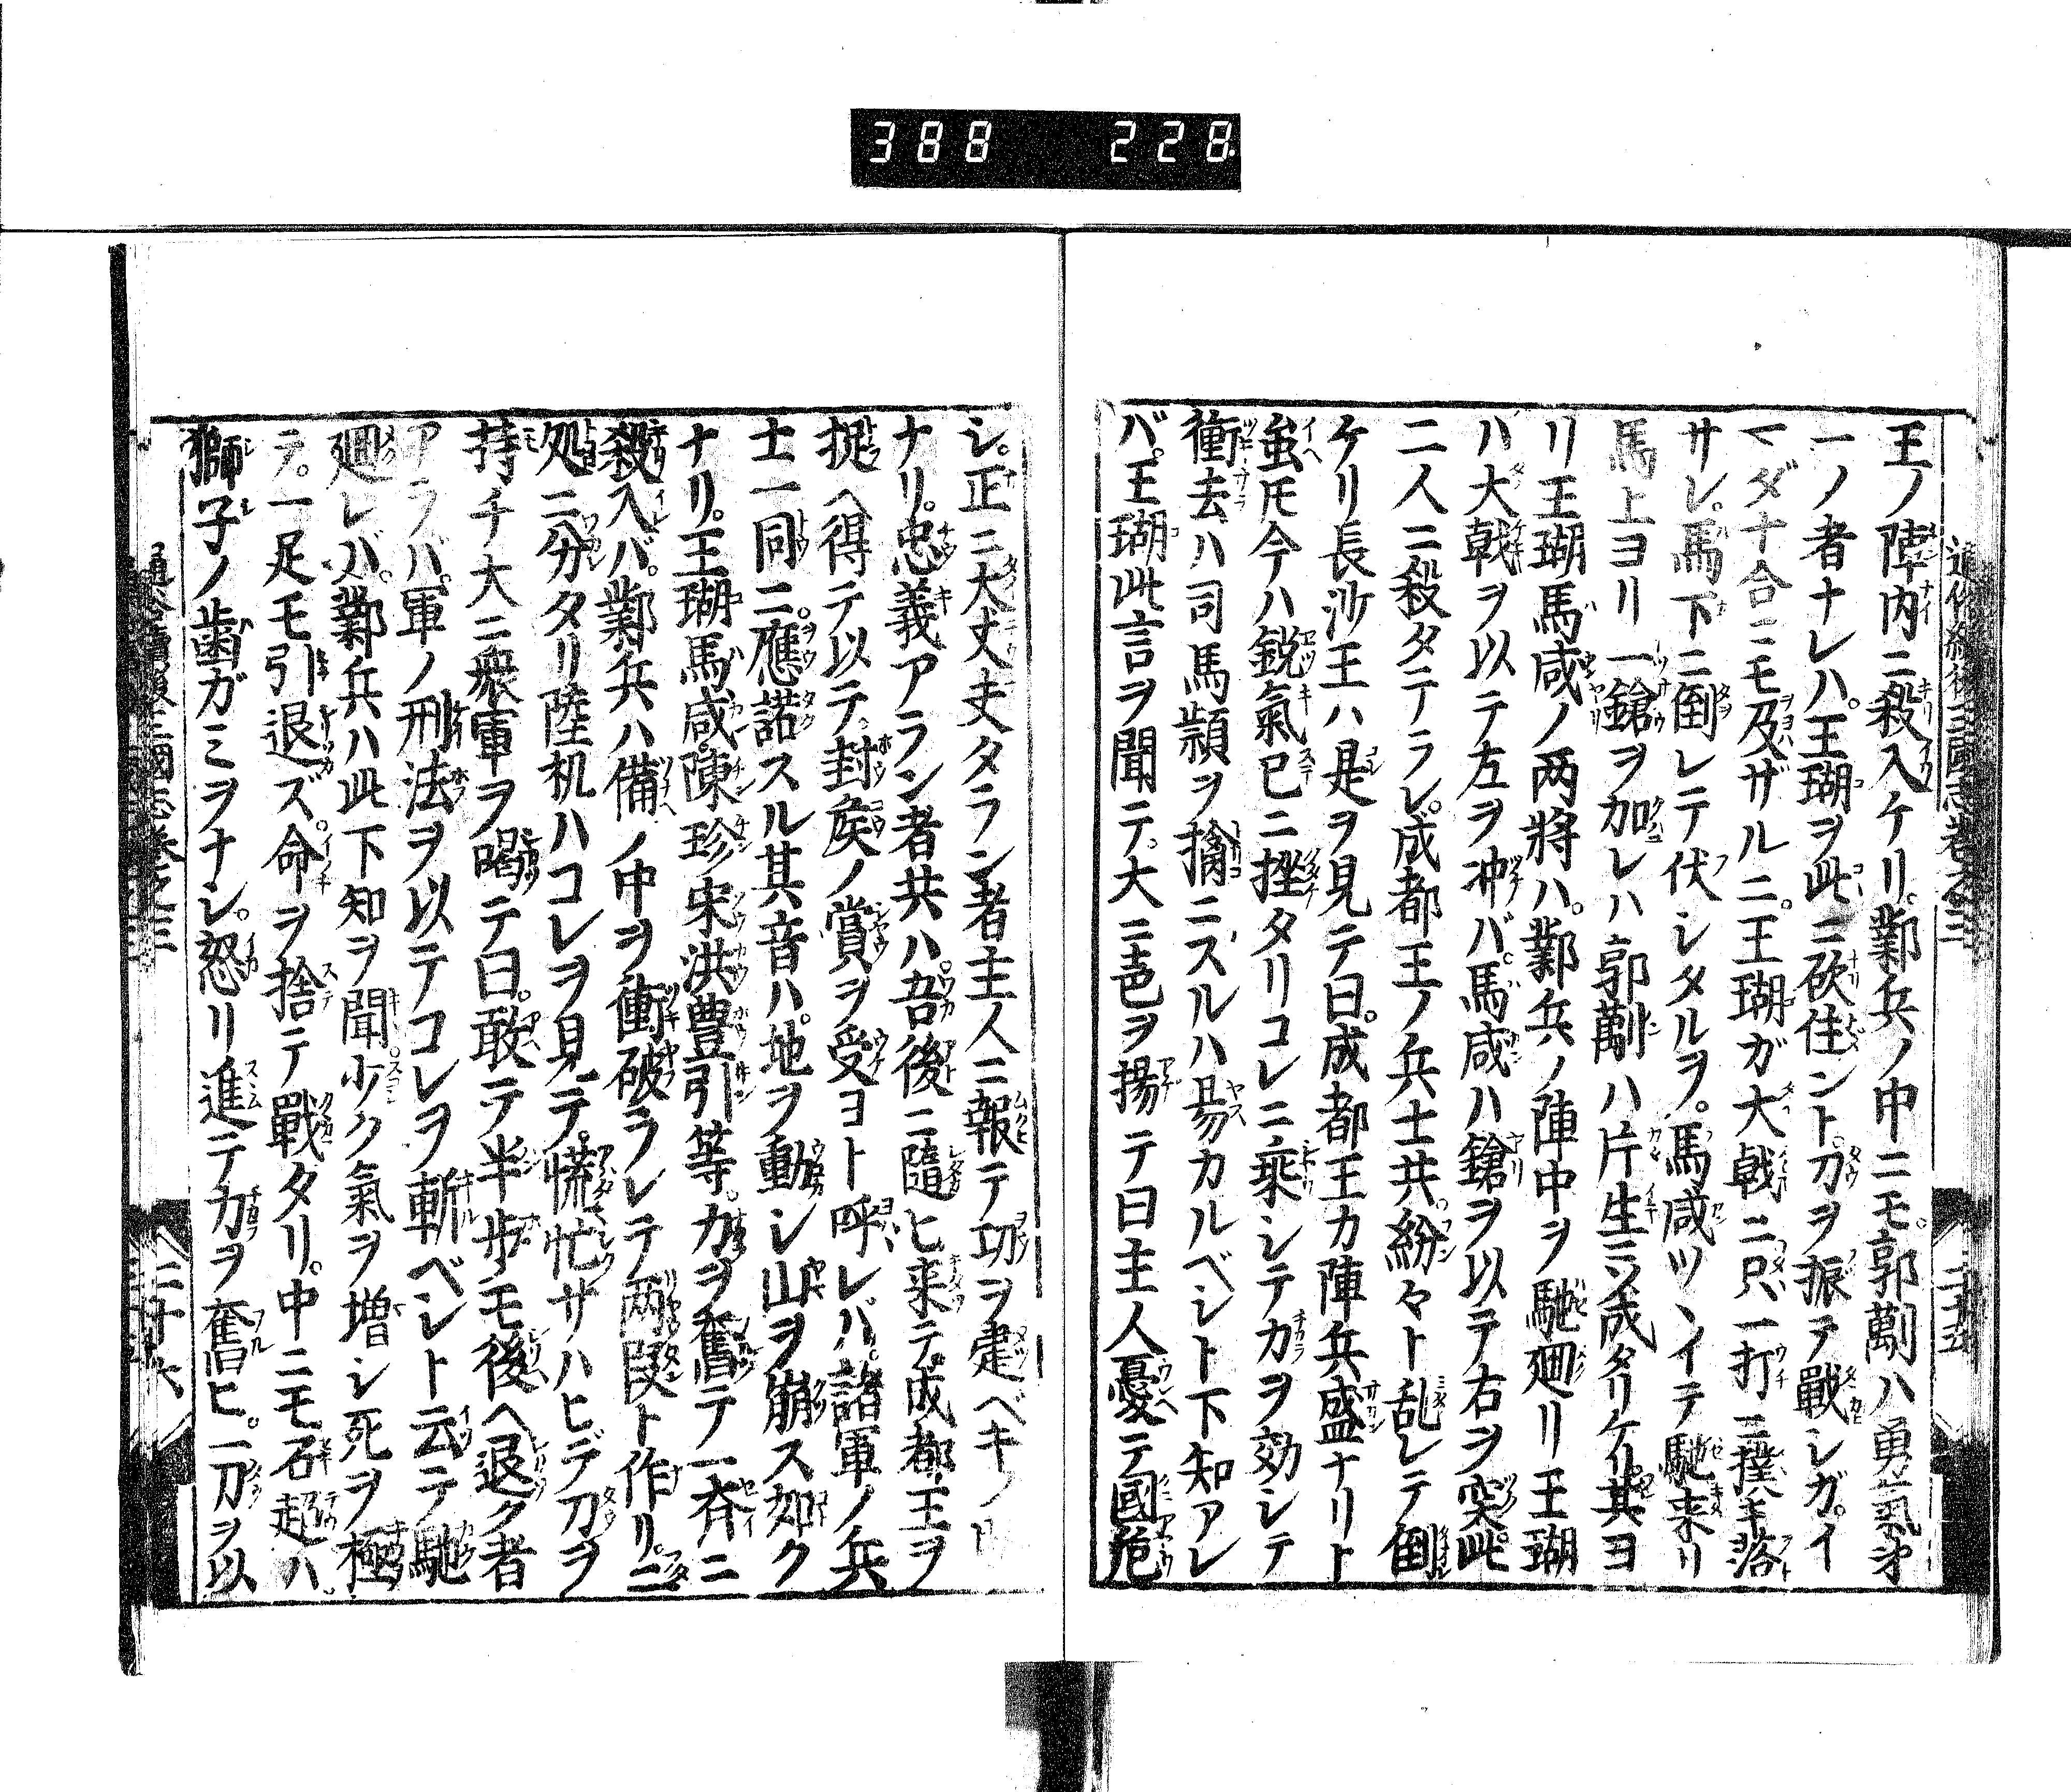 388 228
通俗續後三國志卷之三
二十五
王ノ陣内ニ殺入ケリ。鄴兵ノ中ニモ。郭勱ハ勇氣第
一ノ者ナレハ。王瑚ヲ此ニ砍住ント。刀ヲ振テ戰シガ。イ
マダ十合ニモ及ザルニ。王瑚ガ大戟ニ只一打ニ撲キ落
サレ。馬下ニ倒レテ伏シタルヲ。馬咸ツヽイテ馳来リ
馬上ヨリ一鎗ヲ加レハ郭勱ハ片生ニソ成タリケリ。其ヨ
リ王瑚馬咸ノ两將ハ。鄴兵ノ陣中ヲ馳廻リ王瑚
ハ大戟ヲ以テ左ヲ冲バ。馬咸ハ鎗ヲ以テ右ヲ突。此
二人ニ殺タテラレ。成都王ノ兵士共。紛々ト乱レテ倒
ケリ長沙王ハ是ヲ見テ曰。成都王カ陣兵盛ナリト
虽𪜈今ハ鋭氣已ニ挫タリコレニ乗シテカヲ効シテ
衝去ハ司馬頴ヲ擒ニスルハ易カルベシト下知アレ
バ。王瑚此言ヲ聞テ。大ニ㐌ヲ揚テ曰主人憂テ國危
シ。正ニ大丈夫タラン者主人ニ報テ功ヲ建ベキノ時
ナリ。忠義アラン者共ハ。吾後ニ隨ヒ来テ。成都王ヲ
捉ヘ得テ以テ。封矦ノ賞ヲ受ヨト呼レバ。諸軍ノ兵
士一同ニ。應諾スル其音ハ。地ヲ動シ山ヲ崩ス如ク
ナリ。王瑚馬咸。陳珍宋洪豊引等。力ヲ奮テ一斉ニ
殺入バ。鄴兵ハ備ノ中ヲ衝破ラレテ两段ト作リ。ニ
処ニ分タリ陸机ハコレヲ見テ。慌忙サハヒデ刀ヲ
持チ大ニ衆軍ヲ喝テ曰。敢テ半歩モ後ヘ退ク者
アラバ。軍ノ刑法ヲ以テコレヲ斬ベシト云テ馳
廻レバ。鄴兵ハ此下知ヲ聞。少ク氣ヲ増シ死ヲ極
テ。一足モ引退ズ。命ヲ捨テ戰タリ。中ニモ石超ハ
獅子ノ歯ガミヲナシ。怒リ進テ力ヲ奮ヒ。一刀ヲ以
通俗續後三國志卷之三
二十六